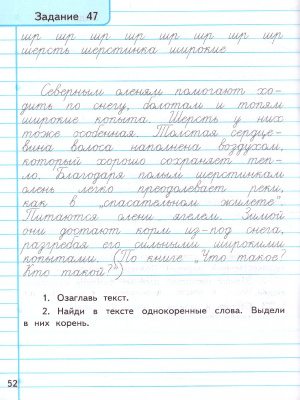 Задание 47
шр шр шр шр шр шр шр шр
шерсть шерстинка широкие
Северным оленям помогают хо-
дить по снегу, болотам и топям
широкие копыта. Шерсть у них
тоже особенная. Толстая сердце-
вина волоса наполнена воздухом,
который хорошо сохраняет теп-
ло. Благодаря полым шерстинкам
олень легко преодолевает реки,
как в „спасательном жилете“.
Питаются олени ягелем. Зимой
они достают корм из-под снега,
разгребая его сильными широкими
копытами. (По книге „Что такое?
Кто такой?“)
1. Озаглавь текст.
2. Найди в тексте однокоренные слова. Выдели
в них корень.
52